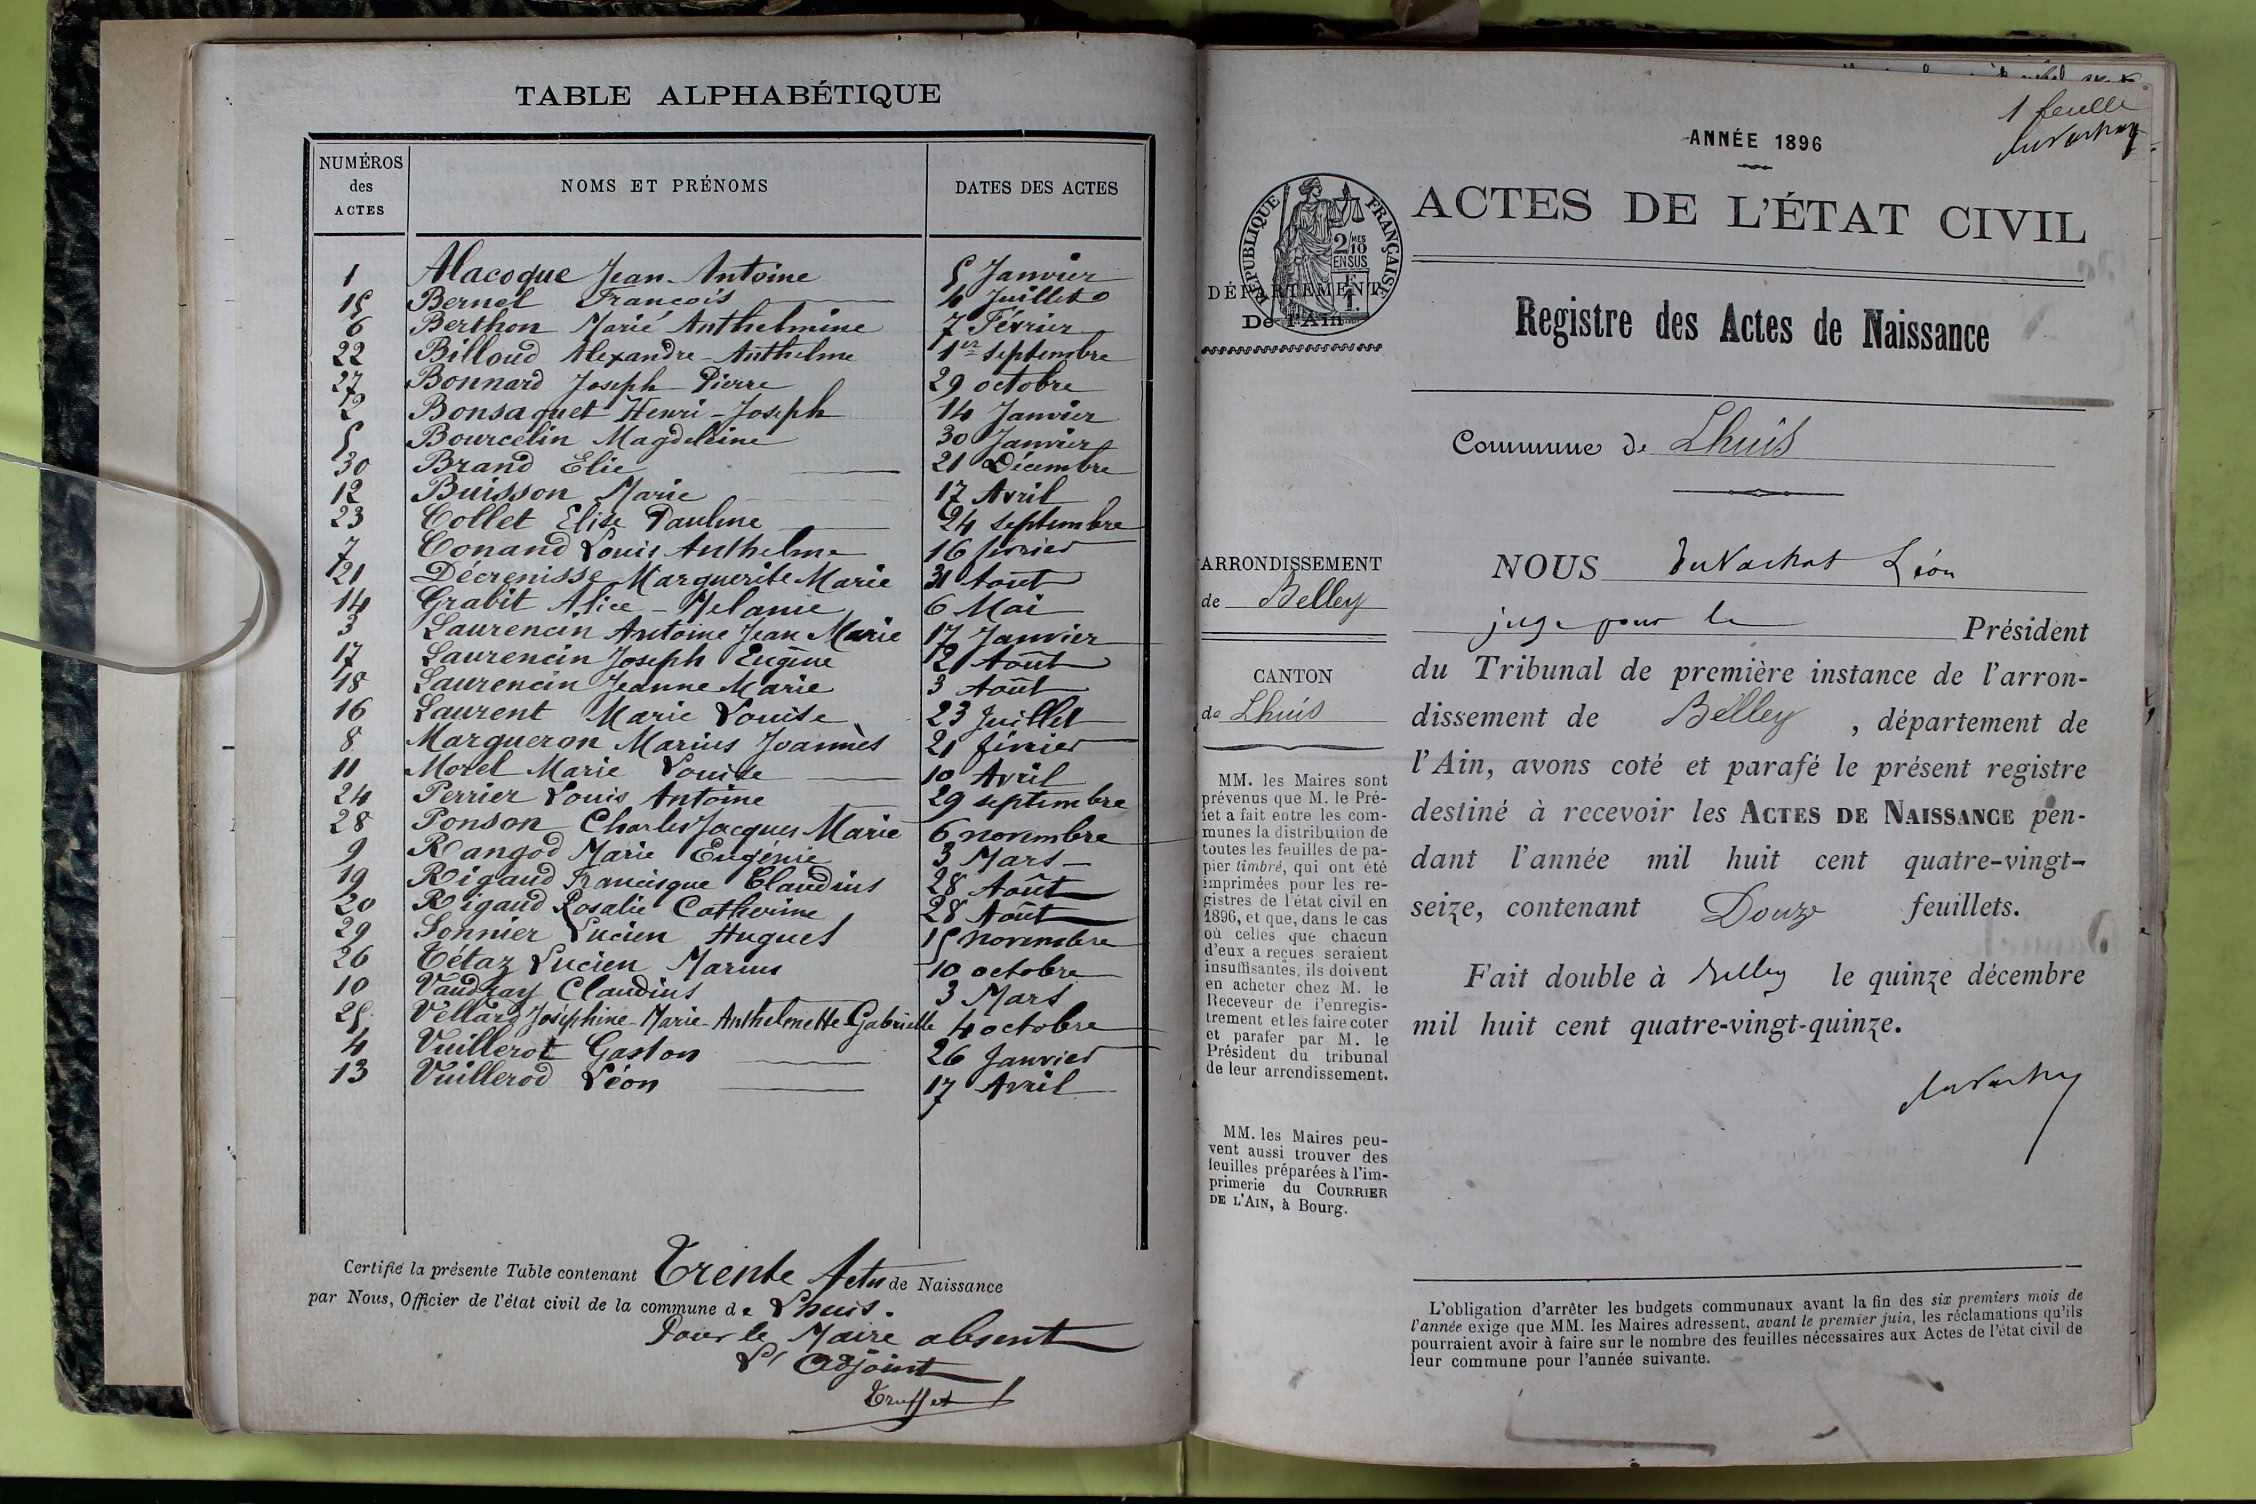 TABLE ALPHABÉTIQUE
NUMÉROS des ACTES NOMS ET PRÉNOMS DATES DES ACTES
1 Alacoque Jean-Antoine 5 Janvier
15 Bernel François 4 Juillet
6 Berthon Marie Anthelmine 7 Février
22 Billoud Alexandre-Anthelme 1er septembre
27 Bonnard Joseph Pierre 29 octobre
2 Bonsaquet Henri-Joseph 14 Janvier
5 Bourcelin Magdeleine 30 Janvier
30 Brand Elie 21 Décembre
12 Buisson Marie 17 Avril
23 Collet Elise Pauline 24 septembre
7 Conand Louis Anthelme 16 février
21 Décrenisse Marguerite Marie 31 Août
14 Grabit Alice-Melanie 6 Mai
3 Laurencin Antoine Jean Marie 17 Janvier
17 Laurencin Joseph Eugène 2 Août
18 Laurencin Jeanne Marie 3 Août
16 Laurent Marie Louise 23 Juillet
8 Margueron Marius Joannès 21 février
11 Morel Marie Louise 10 Avril
24 Perrier Louis Antoine 29 septembre
28 Ponson Charles Jacques Marie 6 novembre
9 Rangod Marie Eugénie 3 Mars
19 Rigaud Francisque Claudius 28 Août
20 Rigaud Rosalie Catherine 28 Août
29 Sonnier Lucien Hugues 15 novembre
26 Tétaz Lucien Marius 10 octobre
10 Vaudray Claudius 3 Mars
25 Vellard Joséphine-Marie-Anthelmette-Gabrielle 4 octobre
4 Vuillerot Gaston 26 Janvier
13 Vuillerod Léon 17 Avril
Certifié la présente Table contenant Trente Actes de Naissance
par Nous, Officier de l'état civil de la commune de Lhuis.
Pour le Maire absent
L'Adjoint
Truffet
1 feuille
duvachat
ANNÉE 1896
ACTES DE L'ÉTAT CIVIL
RÉPUBLIQUE FRANÇAISE
2/10mes
EN SUS
1 F
DÉPARTEMENT
De l'Ain
Registre des Actes de Naissance
Commune de Lhuis
ARRONDISSEMENT
de Belley
CANTON
de Lhuis
MM. les Maires sont
prévenus que M. le Pré-
fet a fait entre les com-
munes la distribution de
toutes les feuilles de pa-
pier timbré, qui ont été
imprimées pour les re-
gistres de l'état civil en
1896, et que, dans le cas
où celles que chacun
d'eux a reçues seraient
insuffisantes, ils doivent
en acheter chez M. le
Receveur de l'enregis-
trement et les faire coter
et parafer par M. le
Président du tribunal
de leur arrondissement.
MM. les Maires peu-
vent aussi trouver des
feuilles préparées à l'im-
primerie du COURRIER
DE L'AIN, à Bourg.
NOUS duVachat Léon
juge pour le Président
du Tribunal de première instance de l'arron-
dissement de Belley, département de
l'Ain, avons coté et parafé le présent registre
destiné à recevoir les ACTES DE NAISSANCE pen-
dant l'année mil huit cent quatre-vingt-
seize, contenant Douze feuillets.
Fait double à Belley le quinze décembre
mil huit cent quatre-vingt-quinze.
duvachat
L'obligation d'arrêter les budgets communaux avant la fin des six premiers mois de
l'année exige que MM. les Maires adressent, avant le premier juin, les réclamations qu'ils
pourraient avoir à faire sur le nombre des feuilles nécessaires aux Actes de l'état civil de
leur commune pour l'année suivante.